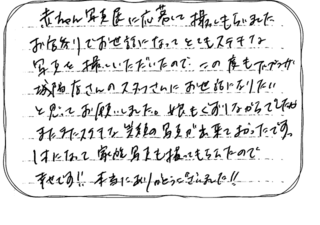 赤ちゃん写真展に応募して撮ってもらいました
お宮参りでお世話になってとてもステキな
写真を撮っていただいたので、この度も
店さんのスタッフさんにお世話になりたい
と思ってお願いしました。娘もぐずりながらでしたが
またまたステキな笑顔の写真が出来てよかったです。
になって家族写真も撮ってもらえたので
幸せです!! 本当にありがとうございました!!